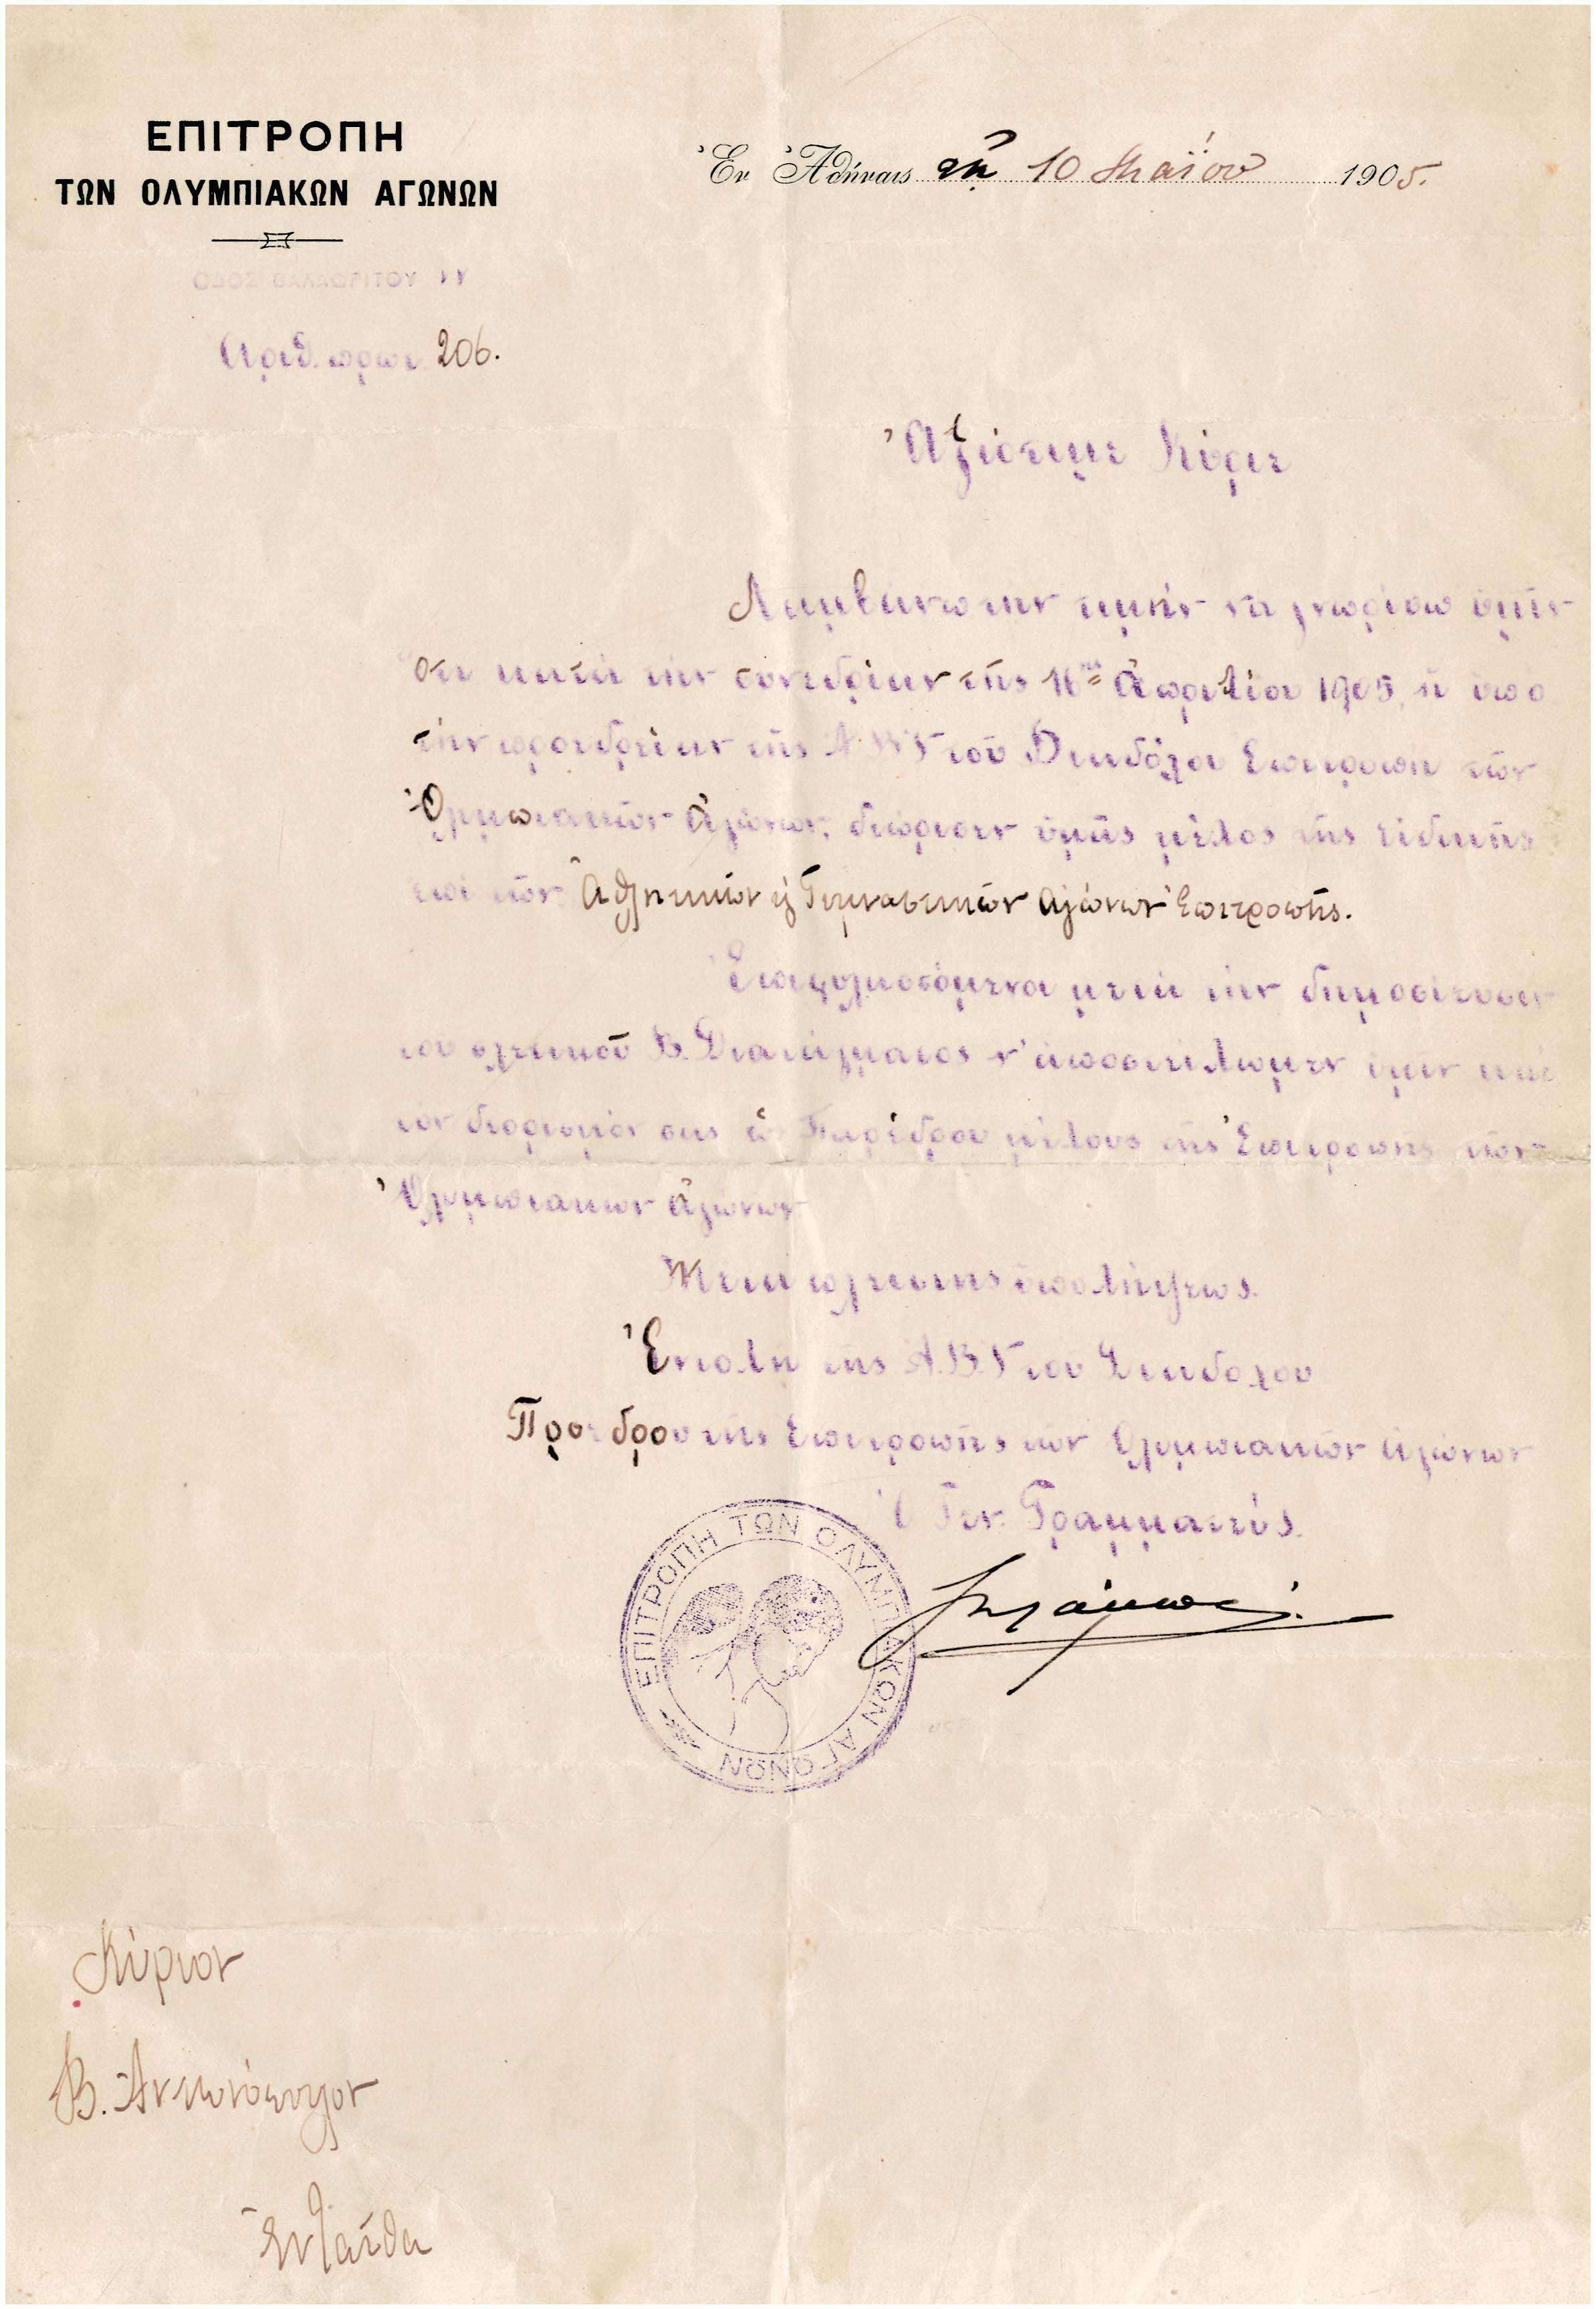 ΕΠΙΤΡΟΠΗ
ΤΩΝ ΟΛΥΜΠΙΑΚΩΝ ΑΓΩΝΩΝ
Ἐν Ἀθήναις τῇ 10 Μαΐου 1905.
ΟΔΟΣ ΒΑΛΑΩΡΙΤΟΥ 11
Ἀριθ. πρωτ. 206.
Ἀξιότιμε Κύριε
Λαμβάνω τὴν τιμὴν νὰ γνωρίσω ὑμῖν
ὅτι κατὰ τὴν συνεδρίαν τῆς 16ης Ἀπριλίου 1905, ἡ ὑπὸ
τὴν προεδρείαν τῆς Α.Β.Υ τοῦ Διαδόχου Ἐπιτροπὴ τῶν
Ὀλυμπιακῶν Ἀγώνων, διώρισεν ὑμᾶς μέλος τῆς εἰδικῆς
ἐπὶ τῶν Ἀθλητικῶν ϗ Γυμναστικῶν Ἀγώνων Ἐπιτροπῆς.
Ἐπιφυλασσόμενοι μετὰ τὴν δημοσίευσιν
τοῦ σχετικοῦ Β. Διατάγματος ν' ἀποστείλωμεν ὑμῖν καὶ
τὸν διορισμόν σας ὡς Παρέδρου μέλους τῆς Ἐπιτροπῆς τῶν
Ὀλυμπιακῶν Ἀγώνων
Μετὰ πλείστης ὑπολήψεως.
Ἐντολῇ τῆς Α.Β.Υ τοῦ Διαδόχου
Προέδρου τῆς Ἐπιτροπῆς τῶν Ὀλυμπιακῶν Ἀγώνων
Ὁ Γεν. Γραμματεύς.
ΕΠΙΤΡΟΠΗ ΤΩΝ ΟΛΥΜΠΙΑΚΩΝ ΑΓΩΝΩΝ
Κύριον
Β. Ἀντωνόπουλον
Ἐνταῦθα